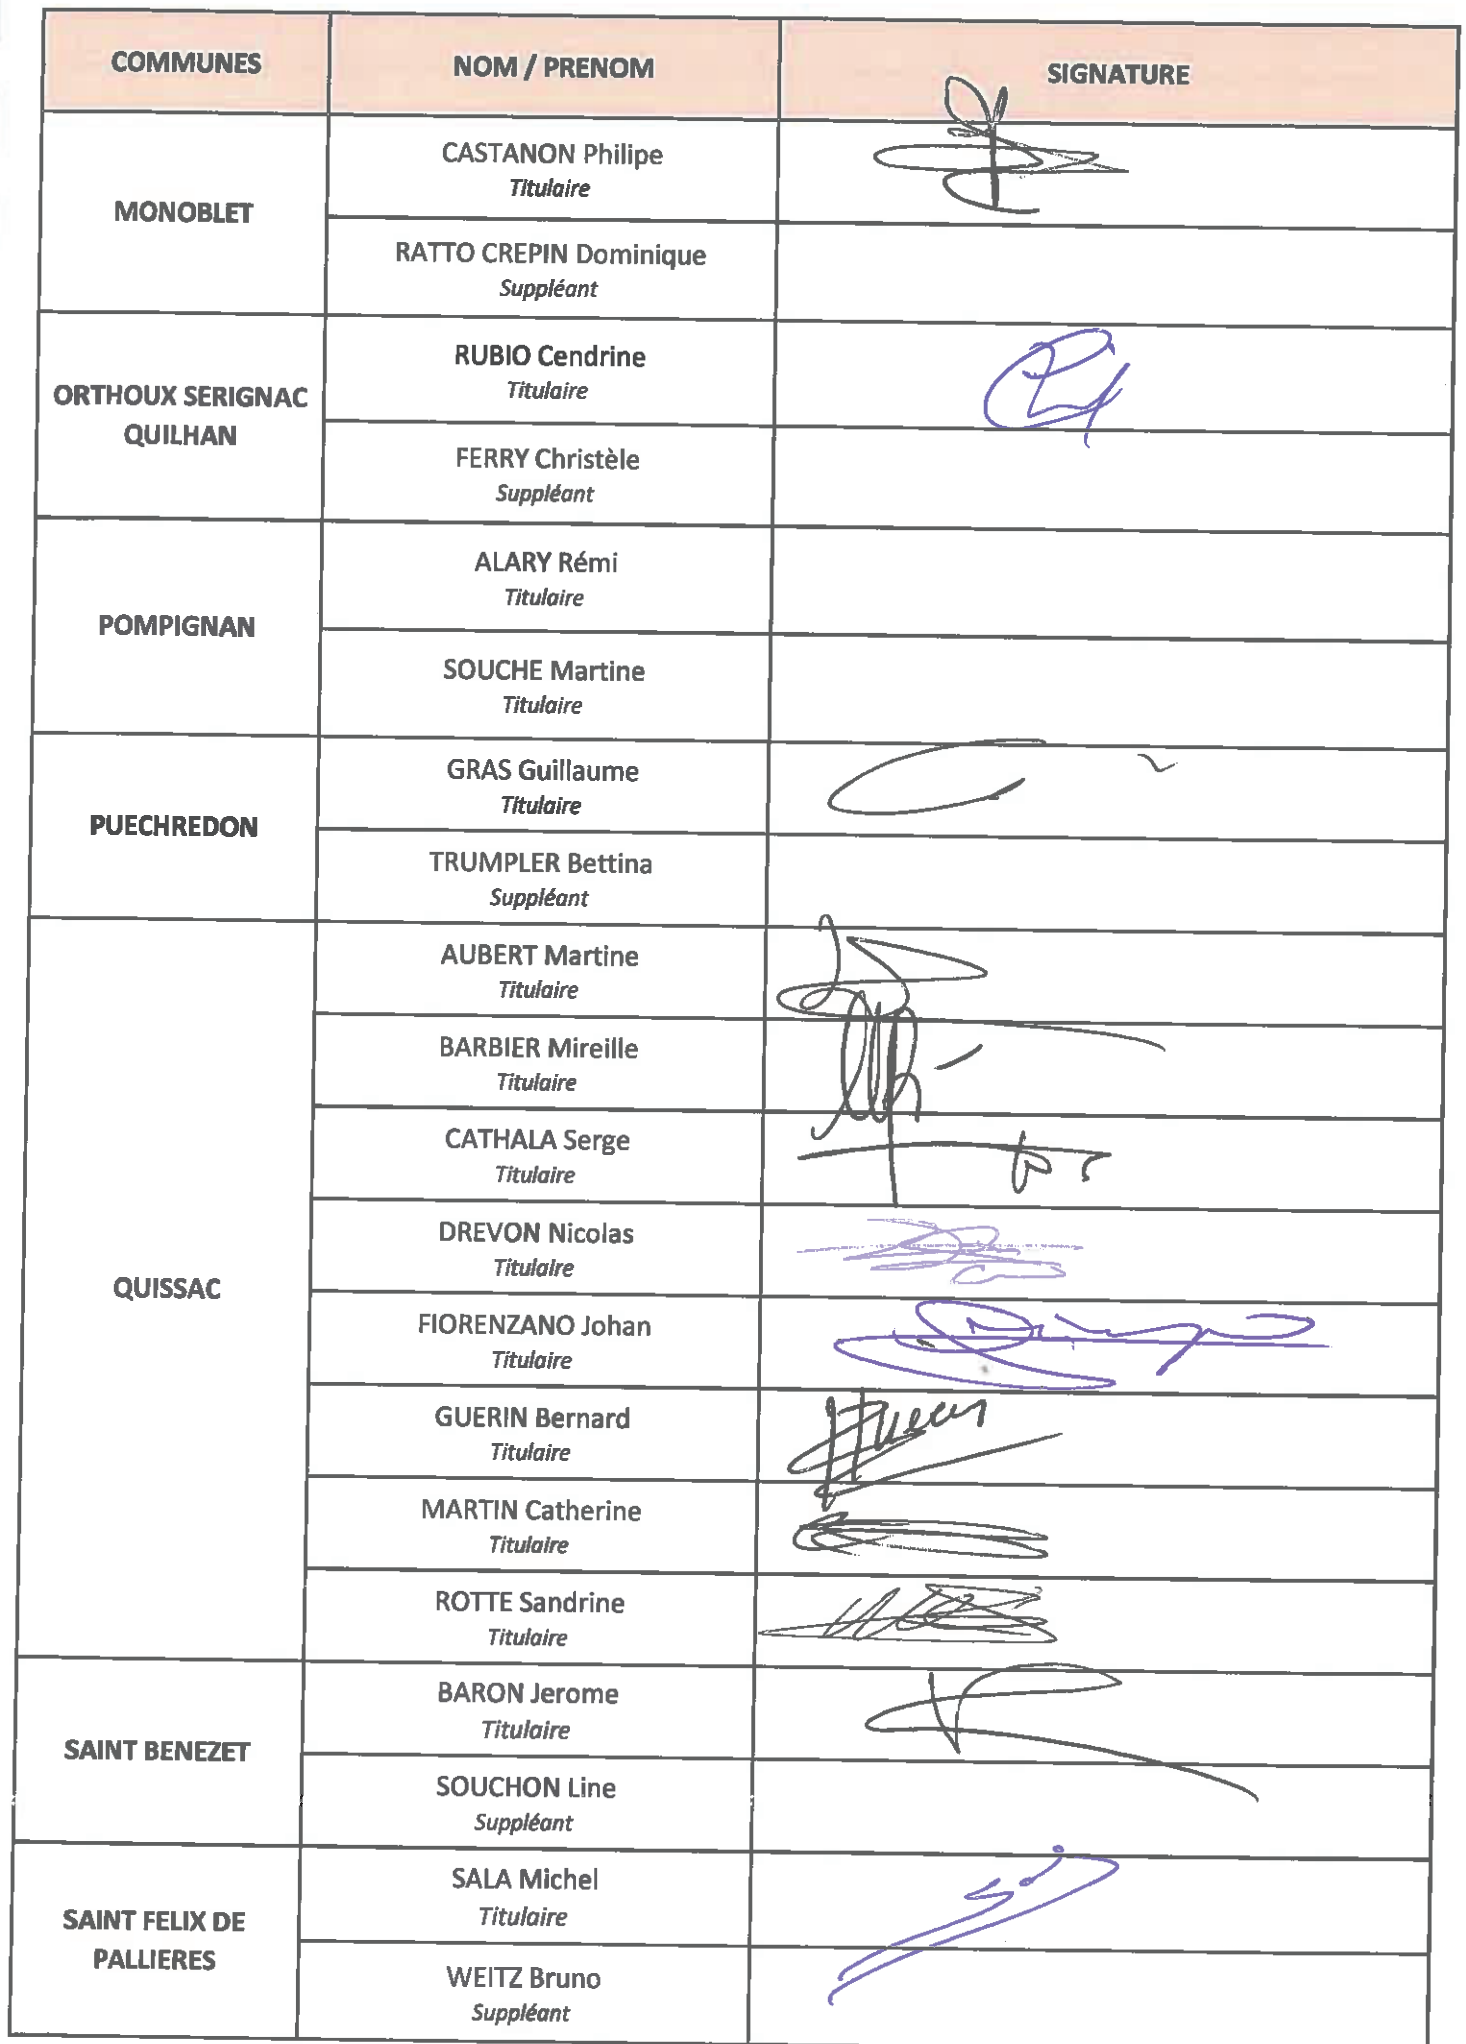 COMMUNES
NOM / PRENOM
SIGNATURE
MONOBLET
CASTANON Philipe
Titulaire
RATTO CREPIN Dominique
Suppléant
ORTHOUX SERIGNAC
QUILHAN
RUBIO Cendrine
Titulaire
FERRY Christèle
Suppléant
POMPIGNAN
ALARY Rémi
Titulaire
SOUCHE Martine
Titulaire
PUECHREDON
GRAS Guillaume
Titulaire
TRUMPLER Bettina
Suppléant
QUISSAC
AUBERT Martine
Titulaire
BARBIER Mireille
Titulaire
CATHALA Serge
Titulaire
DREVON Nicolas
Titulaire
FIORENZANO Johan
Titulaire
GUERIN Bernard
Titulaire
MARTIN Catherine
Titulaire
ROTTE Sandrine
Titulaire
SAINT BENEZET
BARON Jerome
Titulaire
SOUCHON Line
Suppléant
SAINT FELIX DE
PALLIERES
SALA Michel
Titulaire
WEITZ Bruno
Suppléant